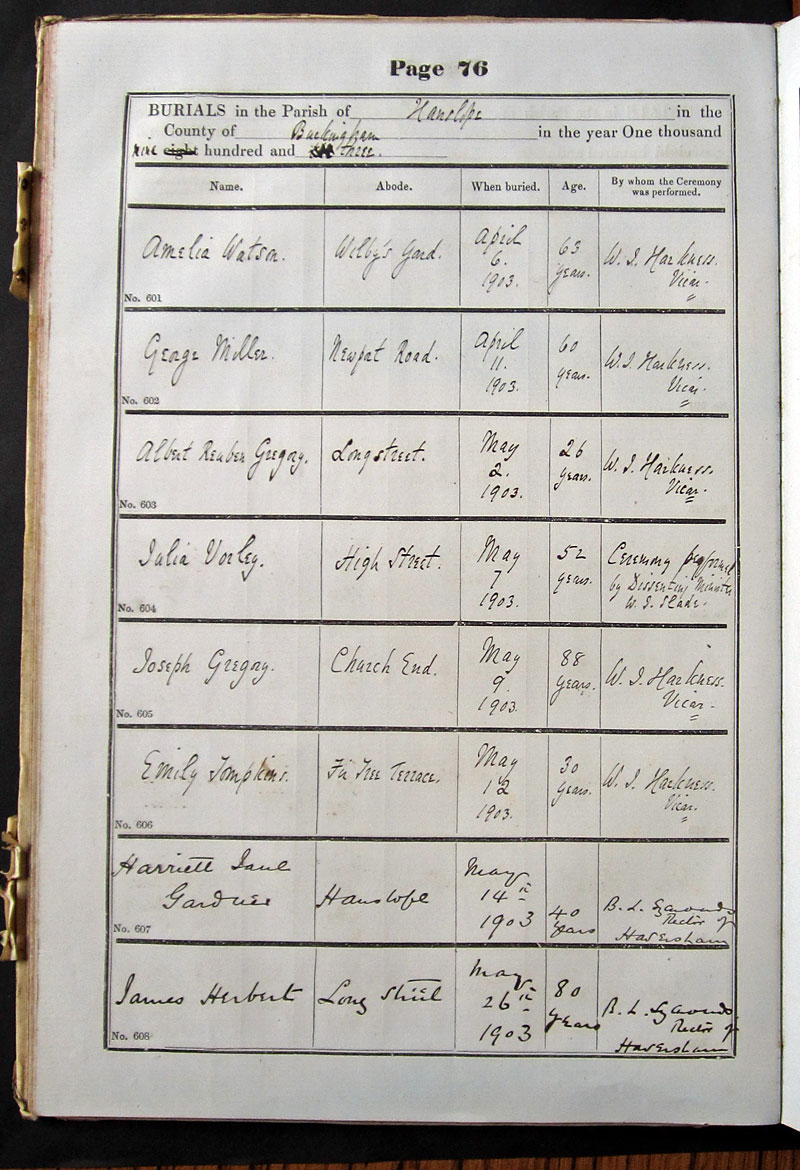 Page 76
BURIALS in the Parish of Hanslope in the
County of Buckingham in the year One thousand
nine eight hundred and three.
Name. Abode. When buried. Age. By whom the Ceremony was performed.
Amelia Watson. Wilby's Yard. April 6. 1903. 63 years. W. J. Harkness. Vicar.
No. 601
George Miller. Newport Road. April 11. 1903. 60 years. W. J. Harkness. Vicar.
No. 602
Albert Reuben Gregory. Longstreet. May 2. 1903. 26 years. W. J. Harkness. Vicar.
No. 603
Julia Vorley. High Street. May 7 1903. 52 years. Ceremony performed by Dissenting Minister W. S. Slade.
No. 604
Joseph Gregory. Church End. May 9. 1903. 88 years. W. J. Harkness. Vicar.
No. 605
Emily Tompkins. Fir Tree Terrace. May 12 1903. 30 years. W. J. Harkness. Vicar.
No. 606
Harriett Jane Gardner Hanslope May 14th 1903 40 years B. L. Rector of Haversham
No. 607
James Herbert Long Street May 26th 1903 80 years B. L. Rector of Haversham
No. 608